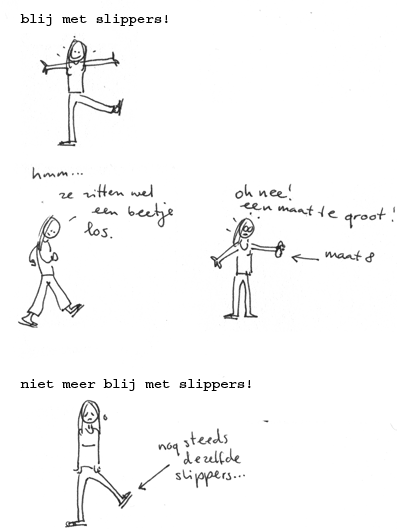 blij met slippers!
hmm...
ze zitten wel
een beetje
los.
oh nee!
een maat te groot!
maat 8
niet meer blij met slippers!
nog steeds
dezelfde
slippers...